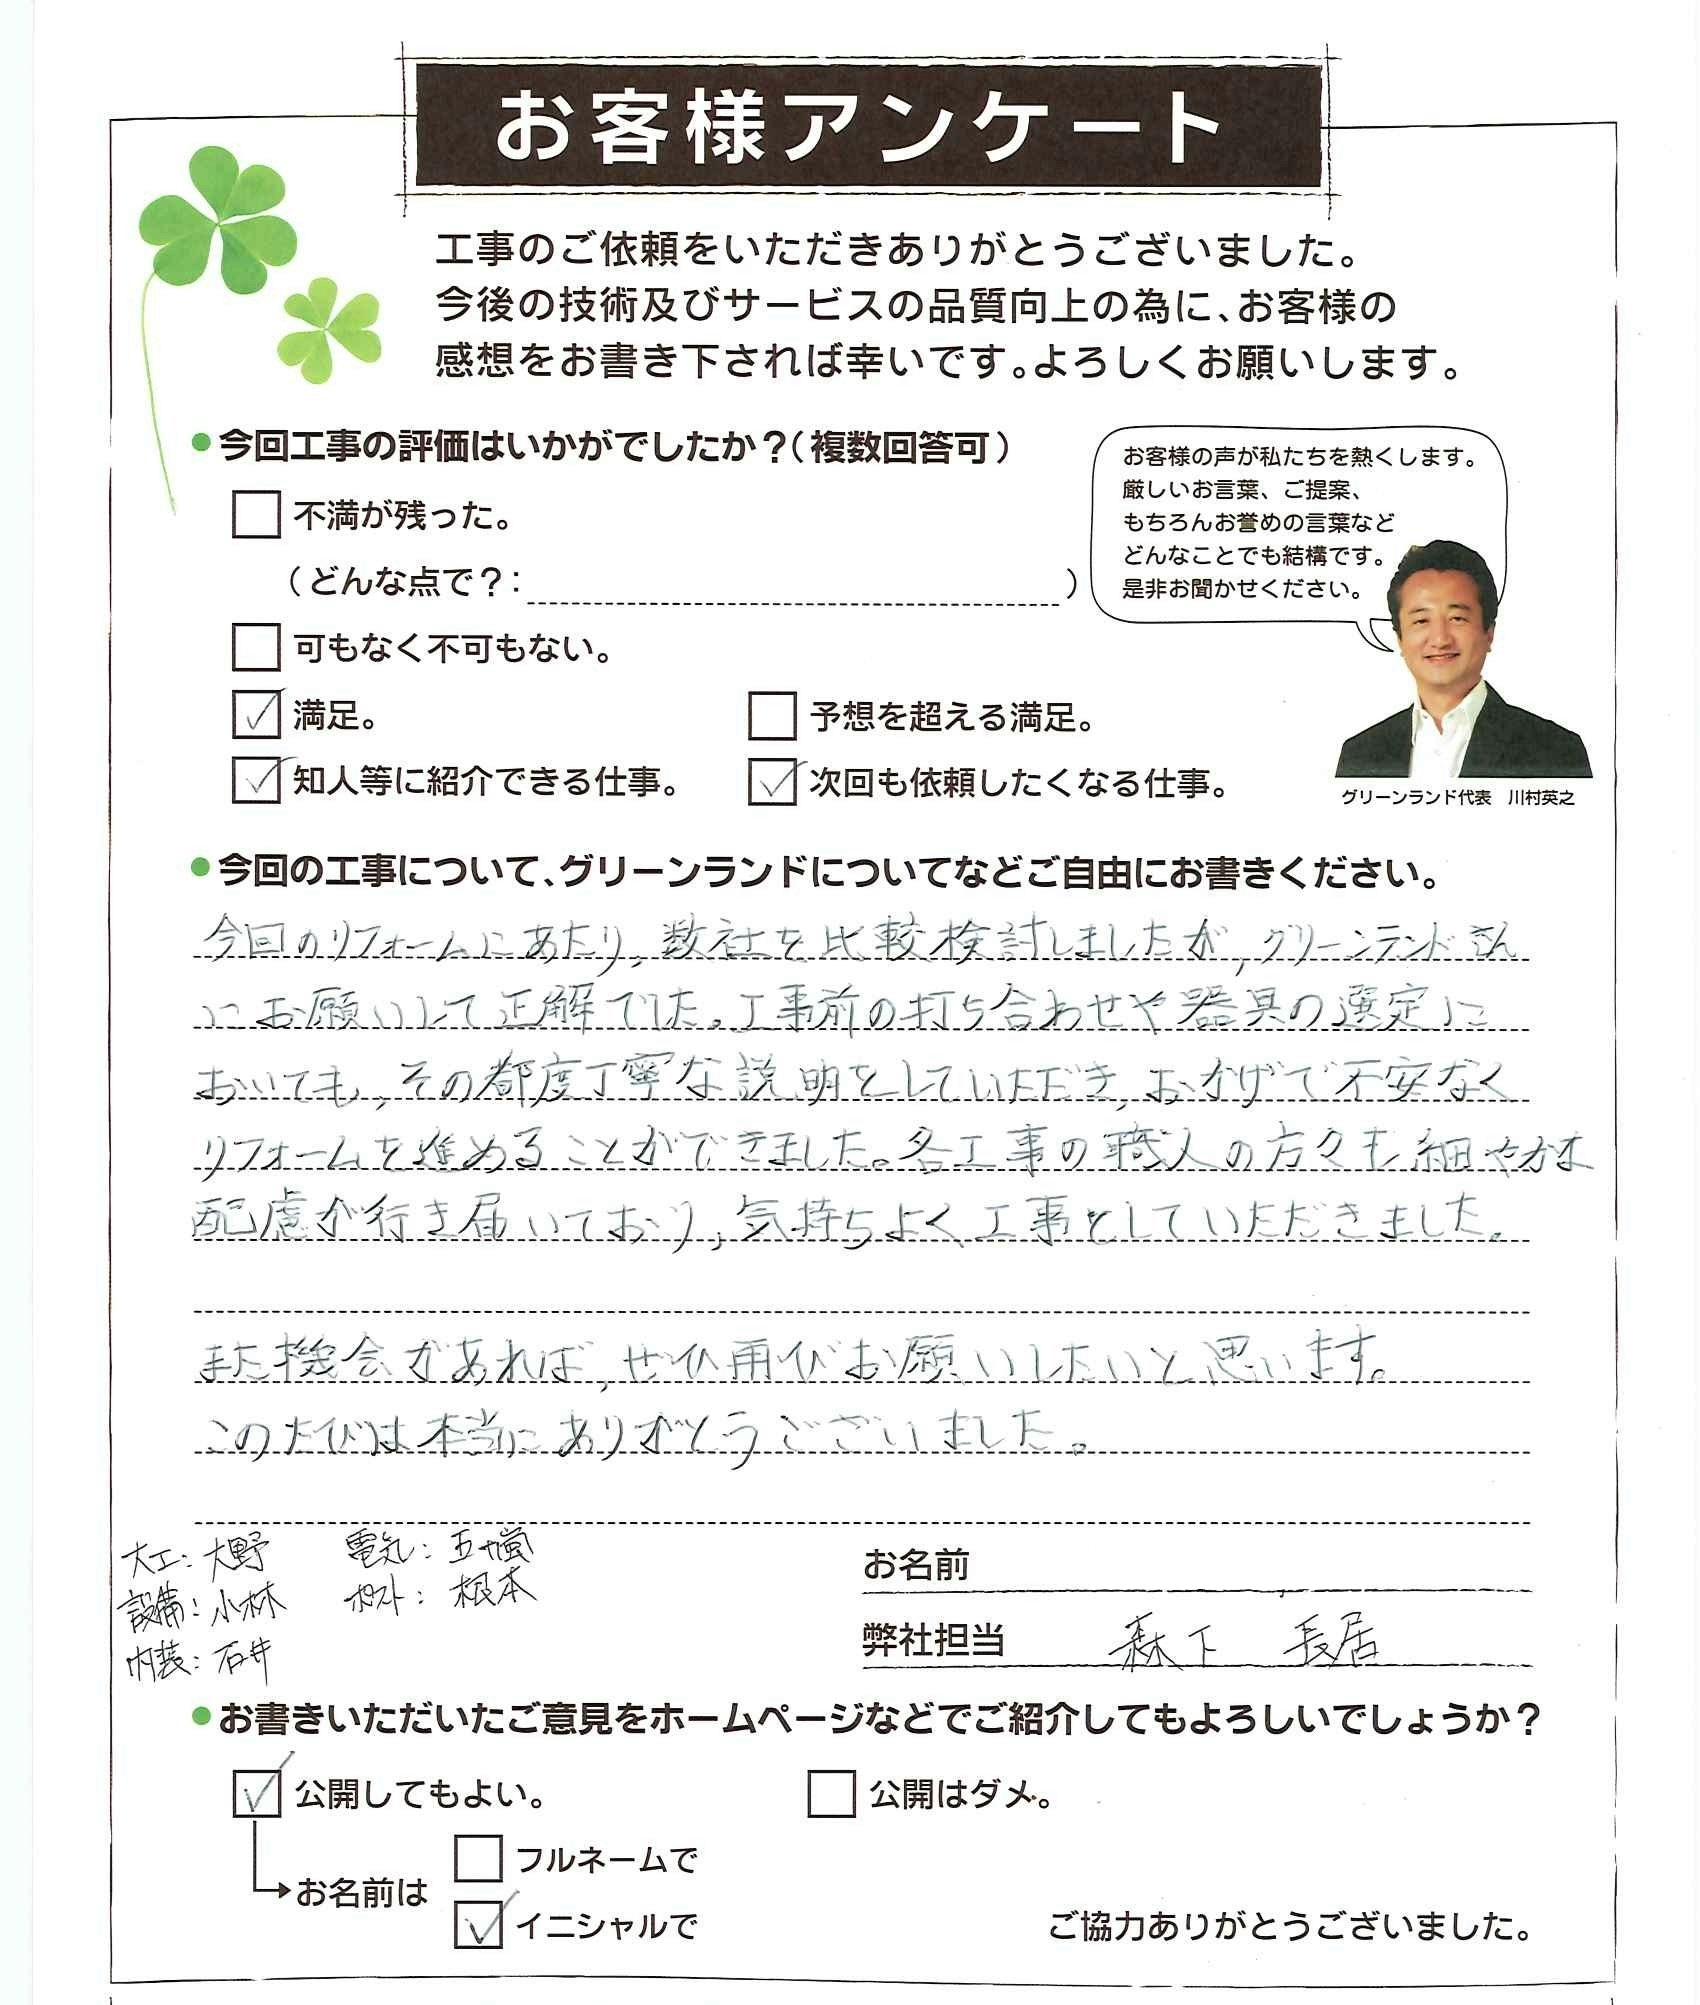 お客様アンケート
工事のご依頼をいただきありがとうございました。
今後の技術及びサービスの品質向上の為に、お客様の
感想をお書き下されば幸いです。よろしくお願いします。
●今回工事の評価はいかがでしたか？（複数回答可）
不満が残った。
（どんな点で？： ）
可もなく不可もない。
満足。
予想を超える満足。
知人等に紹介できる仕事。
次回も依頼したくなる仕事。
お客様の声が私たちを熱くします。
厳しいお言葉、ご提案、
もちろんお誉めの言葉など
どんなことでも結構です。
是非お聞かせください。
グリーンランド代表　川村英之
●今回の工事について、グリーンランドについてなどご自由にお書きください。
今回のリフォームにあたり，数社を比較検討しましたが，グリーンランドさん
にお願いして正解でした。工事前の打ち合わせや器具の選定に
おいても，その都度丁寧な説明をしていただき，おかげで不安なく
リフォームを進めることができました。各工事の職人の方々も細やかな
配慮が行き届いており，気持ちよく工事をしていただきました。
また機会があれば，ぜひ再びお願いしたいと思います。
このたびは本当にありがとうございました。
大工：大野　電気：五十嵐
設備：小林　ポスト：根本
内装：石井
お名前
弊社担当　森下　長居
●お書きいただいたご意見をホームページなどでご紹介してもよろしいでしょうか？
公開してもよい。
公開はダメ。
お名前は
フルネームで
イニシャルで
ご協力ありがとうございました。